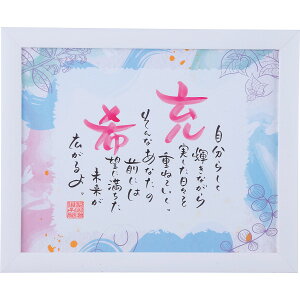 充
希
自分らしく
輝きながら
実した日々を
重ねていく。
そんなあなたの
前には
望に満ちた
未来が
広がるよ。